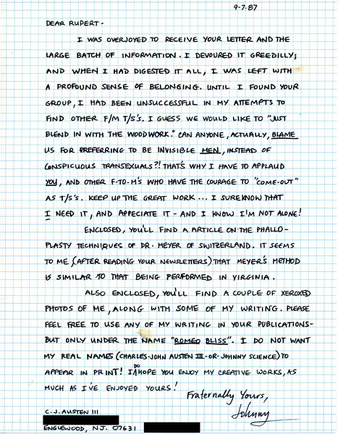 9-7-87
DEAR RUPERT-
I WAS OVERJOYED TO RECEIVE YOUR LETTER AND THE
LARGE BATCH OF INFORMATION. I DEVOURED IT GREEDILY;
AND WHEN I HAD DIGESTED IT ALL, I WAS LEFT WITH
A PROFOUND SENSE OF BELONGING. UNTIL I FOUND YOUR
GROUP, I HAD BEEN UNSUCCESSFUL IN MY ATTEMPTS TO
FIND OTHER F/M T/S's. I GUESS WE WOULD LIKE TO "JUST
BLEND IN WITH THE WOODWORK." CAN ANYONE, ACTUALLY, BLAME
US FOR PREFERRING TO BE INVISIBLE MEN, INSTEAD OF
CONSPICUOUS TRANSEXUALS?! THAT'S WHY I HAVE TO APPLAUD
YOU, AND OTHER F-TO-M'S WHO HAVE THE COURAGE TO "COME-OUT"
AS T/S's. KEEP UP THE GREAT WORK... I SURE KNOW THAT
I NEED IT, AND APPECIATE IT - AND I KNOW I'M NOT ALONE!
ENCLOSED, YOU'LL FIND A ARTICLE ON THE PHALLO-
PLASTY TECHNIQUES OF DR. MEYER OF SWITZERLAND. IT SEEMS
TO ME (AFTER READING YOUR NEWSLETTERS) THAT MEYER'S METHOD
IS SIMILAR TO THAT BEING PERFORMED IN VIRGINIA.
ALSO ENCLOSED, YOU'LL FIND A COUPLE OF XEROXED
PHOTOS OF ME, ALONG WITH SOME OF MY WRITING. PLEASE
FEEL FREE TO USE ANY OF MY WRITING IN YOUR PUBLICATIONS-
BUT ONLY UNDER THE NAME "ROMEO BLISS". I DO NOT WANT
MY REAL NAMES (CHARLES-JOHN AUSTEN III-OR-JOHNNY SCIENCE) TO
APPEAR IN PRINT! I DO HOPE YOU ENJOY MY CREATIVE WORKS, AS
MUCH AS I'VE ENJOYED YOURS!
Fraternally Yours,
Johnny
C.J. AUSTEN III
ENGLEWOOD, N.J. 07631